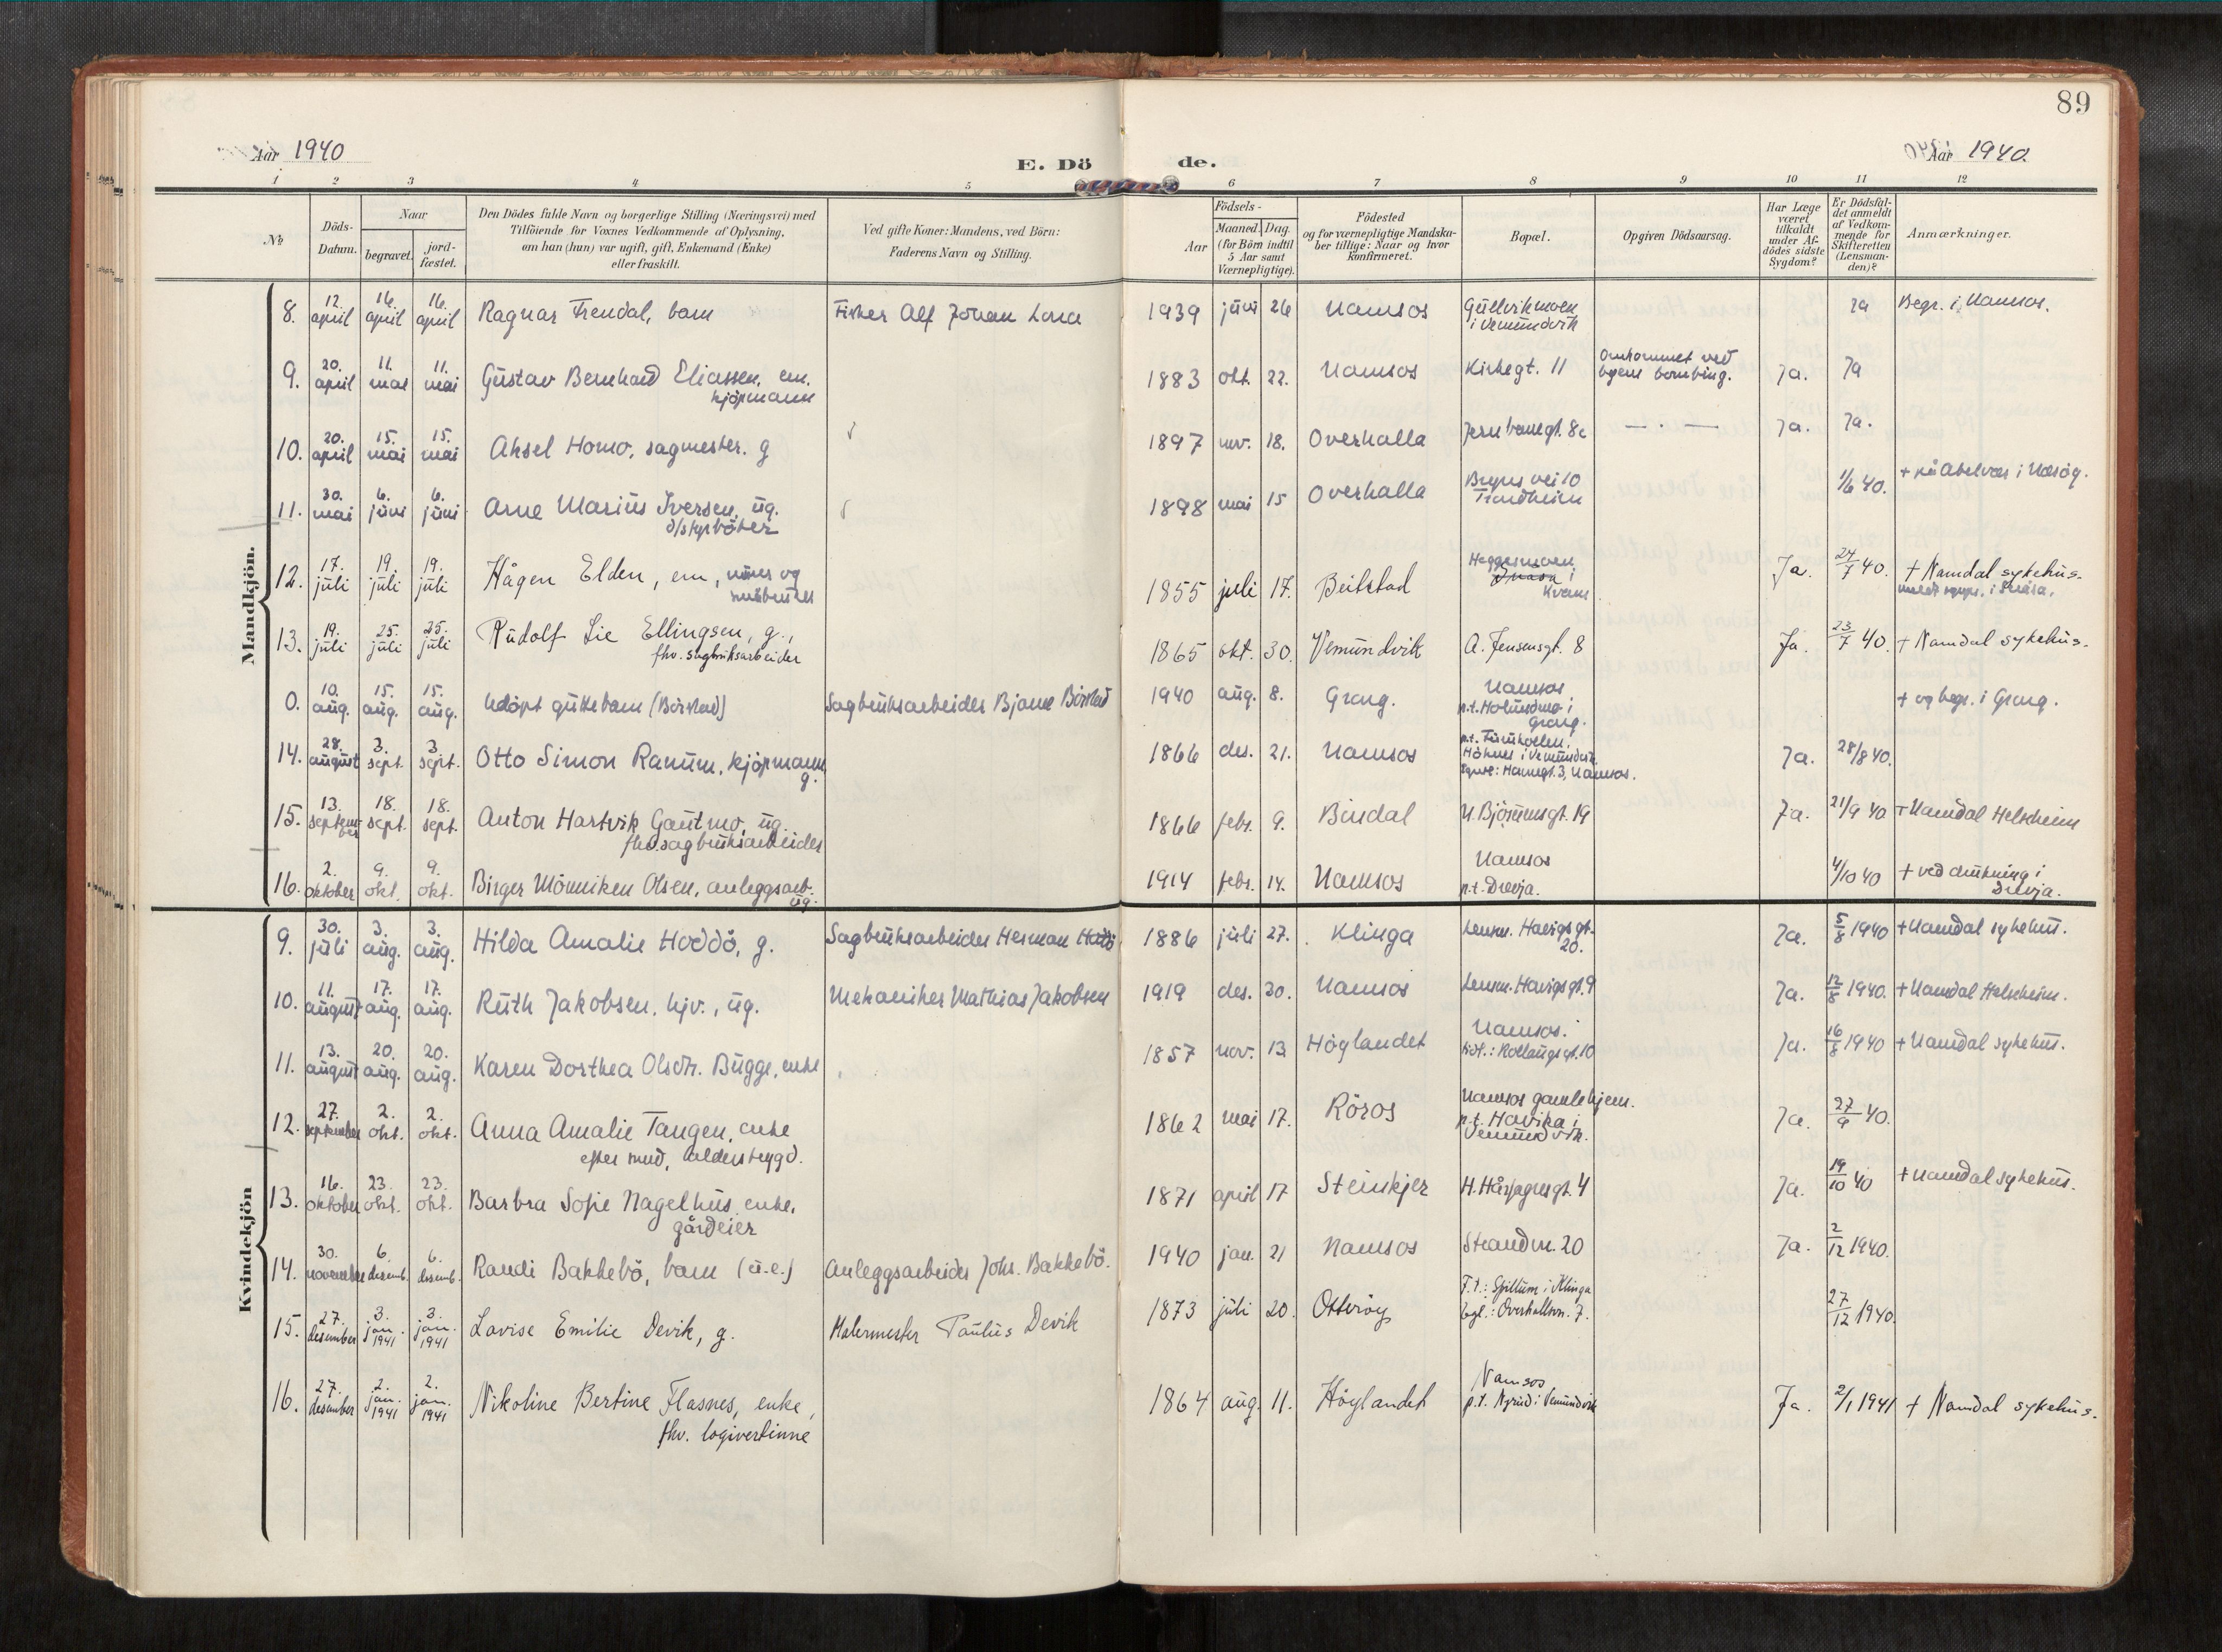 89
Aar 1940
E. Dö de.
Aar 1940.
1 2 3 4 5 6 7 8 9 10 11 12
№
Döds-
Datum.
Naar
begravet.
jord-
fæstet.
Den Dödes fulde Navn og borgerlige Stilling (Næringsvei) med
Tilföiende for Voxnes Vedkommende af Oplysning,
om han (hun) var ugift, gift, Enkemand (Enke)
eller fraskilt.
Ved gifte Koner: Mandens, ved Börn:
Faderens Navn og Stilling.
Födsels-
Aar
Maaned. Dag.
(for Börn indtil
5 Aar samt
Værnepligtige).
Födested
og for værnepligtige Mandska-
ber tillige: Naar og hvor
Konfirmeret.
Bopæl.
Opgiven Dödsaarsag.
Har Læge
været
tilkaldt
under Af-
dödes sidste
Sygdom?
Er Dödsfal-
det anmeldt
af Vedkom-
mende for
Skifteretten
(Lensman-
den)?
Anmærkninger.
Mandkjön.
8. 12. april 16. april 16. april Ragnar Frendal, barn Fisker Alf Johan 1939 juni 26 Namsos Gullvikmoen
i Vemundvik
Ja Begr. i Namsos.
9. 20. april 11. mai 11. mai Gustav Bernhard Eliassen, em. 1883 okt. 22. Namsos Kirkegt. 11 Omkommet ved
kjöpmann byens bombing. Ja. Ja
10. 20. april 15. mai 15. mai Aksel Homo, sagmester. g 1897 nov. 18. Overhalla Jernbanegt. 8c — · — Ja. Ja.
11. 30. mai 6. juni 6. juni Arne Marius Iversen, ug. 1898 mai 15 Overhalla vei 10
Trondheim 1/6 40. + på Abelvær i Nærøy.
d/s fyrböter
12. 17. juli 19. juli 19. juli Hågen Elden, em, 1855 juli 17. Beitstad Heggesmoen
i
Kvam
Ja. 24/7 40. + Namdal sykehus.
i Snåsa.
13. 19. juli 25. juli 25. juli Rudolf Lie Ellingsen, g., 1865 okt. 30. Vemundvik A. Jensensgt. 8 Ja. 23/7 40. + Namdal sykehus.
fhv. sagbruksarbeider
0. 10. aug. 15. aug. 15. aug. Udöpt guttebarn (Börstad) Sagbruksarbeider Bjarne Börstad 1940 aug. 8. Grong. Namsos
p.t. i
Grong.
+ og begr. i Grong.
14. 28. august 3. sept. 3. sept. Otto Simon Ranum, kjöpmann 1866 des. 21. Namsos p.t. Furuhollen,
g. i Vemundvik.
Havnegt. 3, Namsos.
Ja. 28/8 40.
15. 13. september 18. sept. 18. sept. Anton Hartvik Gautmo, ug. 1866 febr. 9. Bindal N. Björumsgt. 19 Ja. 21/9 40 + Namdal Helseheim
fhv. sagbruksarbeider
16. 2. oktober 9. okt. 9. okt. Birger Mönniken Olsen, anleggsarb. 1914 febr. 14. Namsos Namsos
ug. p.t. Drevja. 4/10 40 + ved drukning i
Drevja.
Kvindekjön
9. 30. juli 3. aug. 3. aug. Hilda Amalie Hoddö, g. Sagbruksarbeider Herman Hoddö 1886 juli 27. Klinga Lensm. Havigsgt.
20.
Ja. 5/8 1940 + Namdal sykehus.
10. 11. august 17. aug. 17. aug. Ruth Jakobsen, hjv., ug. Mekaniker Mathias Jakobsen 1919 des. 30. Namsos Lensm. Havigsgt. 9 Ja. 12/8 1940. + Namdal Helseheim.
11. 13. august 20. aug. 20. aug. Karen Dorthea Olsdtr. Bugge, enke 1857 nov. 13. Höylandet Namsos.
10
Ja. 16/8 1940 + Namdal sykehus.
12. 27. september 2. okt. 2. okt. Anna Amalie Tangen, enke 1862 mai 17. Röros Namsos gamlehjem.
p.t. Havika i
Vemundvik.
Ja. 27/9 40.
efter smed, alderstrygd.
13. 16. oktober 23. okt. 23. okt. Barbra Sofie Nagelhus, enke, 1871 april 17 Steinkjer H. Hårfagresgt. 4 Ja. 19/10 40 + Namdal sykehus.
gårdeier
14. 30. november 6. desemb. 6. desemb. Randi Bakkebö, barn (u.e.) Anleggsarbeider Johs. Bakkebö. 1940 jan. 21 Namsos Strandvn. 20 Ja. 2/12 1940.
15. 27. desember 3. jan. 1941 3. jan. 1941 Lovise Emilie Devik, g. Malermester Paulus Devik 1873 juli 20. Otteröy F.t.: Spillum i Klinga
Overhallsvn. 7.
27/12 1940.
16. 27. desember 2. jan. 1941 2. jan. 1941 Nikoline Bertine Flasnes, enke, 1864 aug. 11. Höylandet Namsos
p.t. i Vemundvik
Ja. 2/1 1941 + Namdal sykehus.
fhv. logivertinne